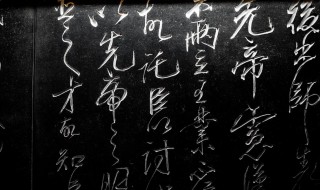 後出師
先帝慮漢
兩立王業
故託臣以討
以先帝之明
臣之才故知臣